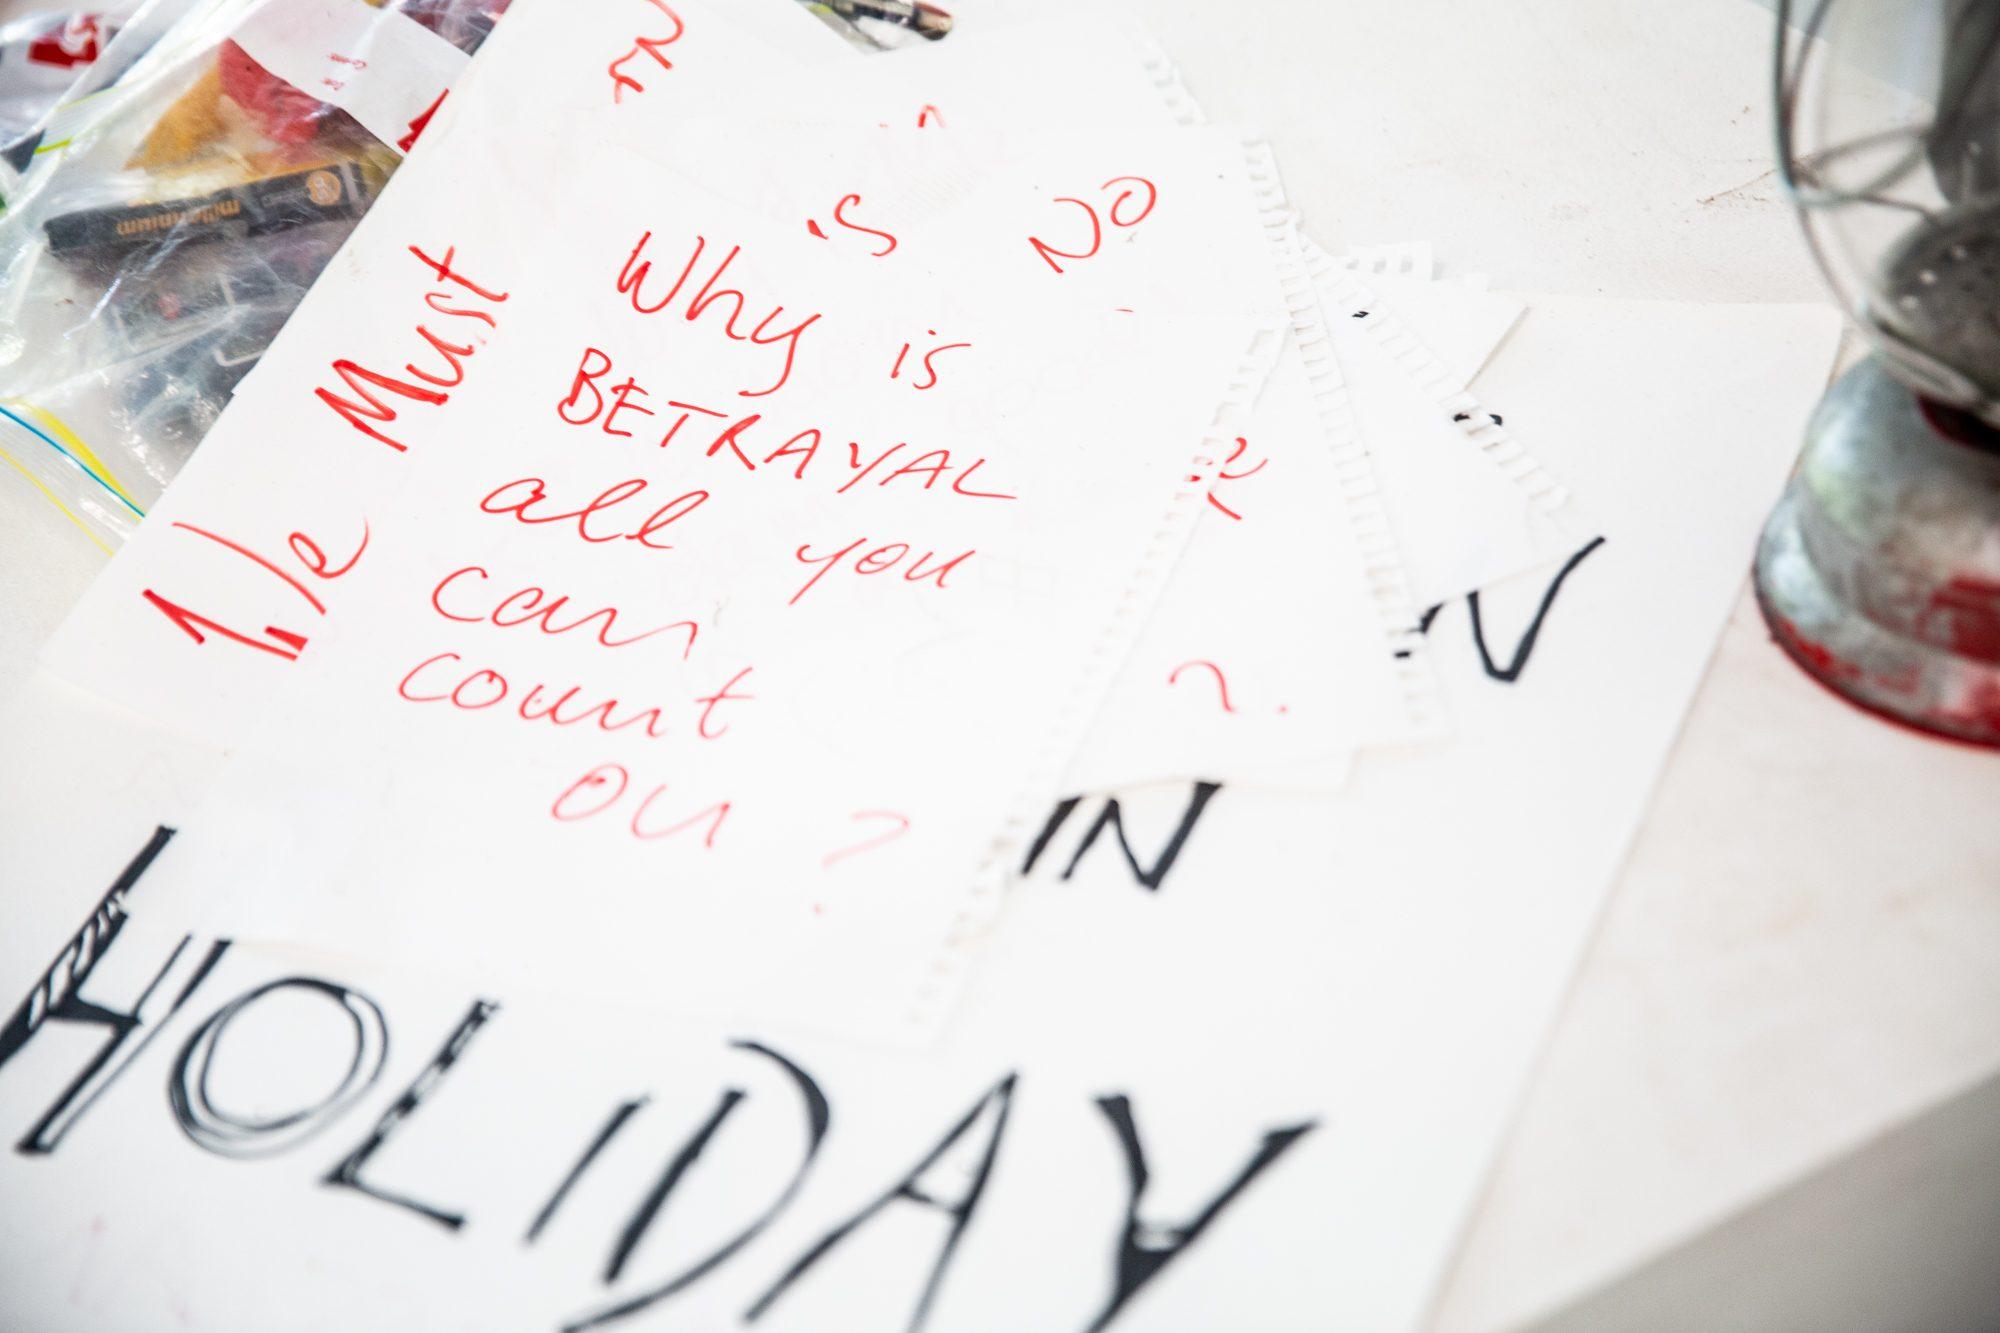 is No
Why is
BETRAYAL
all you
can
count
on ?
We Must
?.
IN
HOLIDAY
millennium